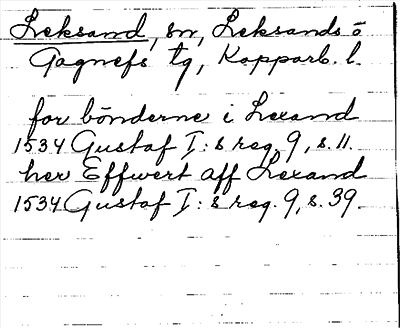 Leksand, sn, Leksands o
Gagnefs tg, Kopparb. l.
for bönderne i Lexand
1534 Gustaf I:s reg. 9, s. 11.
her Effwert aff Lexand
1534 Gustaf I:s reg. 9, s. 39.